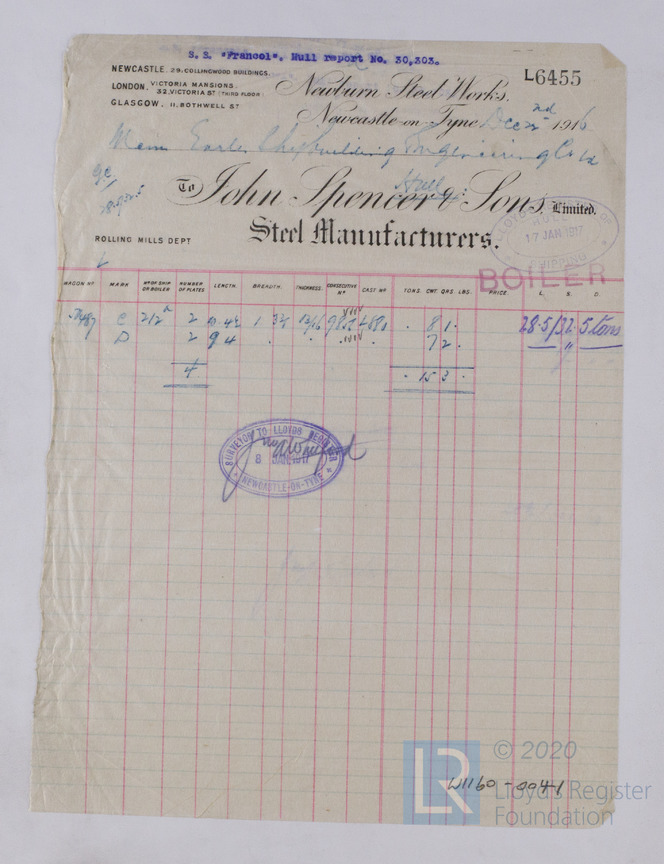 S. S. "Francol". Hull report No. 30,303.
L6455
NEWCASTLE. 29, COLLINGWOOD BUILDINGS.
LONDON, VICTORIA MANSIONS,
32, VICTORIA ST (THIRD FLOOR)
GLASGOW, 11, BOTHWELL ST
Newburn Steel Works,
Newcastle-on-Tyne Dec 22nd 1916
Earles Shipbuilding Engineering Co Ld
Hull
To John Spencer & Sons, Limited.
Steel Manufacturers.
ROLLING MILLS DEPT
17 JAN 1917
SHIPPING
BOILER
WAGON No MARK No OF SHIP OR BOILER NUMBER OF PLATES LENGTH. BREADTH. THICKNESS. CONSECUTIVE No CAST No TONS. CWT. QRS. LBS. PRICE. L. S. D.
C 212 2 13/16 8 1 28.5/32.5 tons
D 2 9 4 7 2
4 15 3
SURVEYOR TO LLOYDS REGISTER
8 JAN 1917
NEWCASTLE-ON-TYNE
LR
© 2020
Lloyd's Register
Foundation
W1160-0041